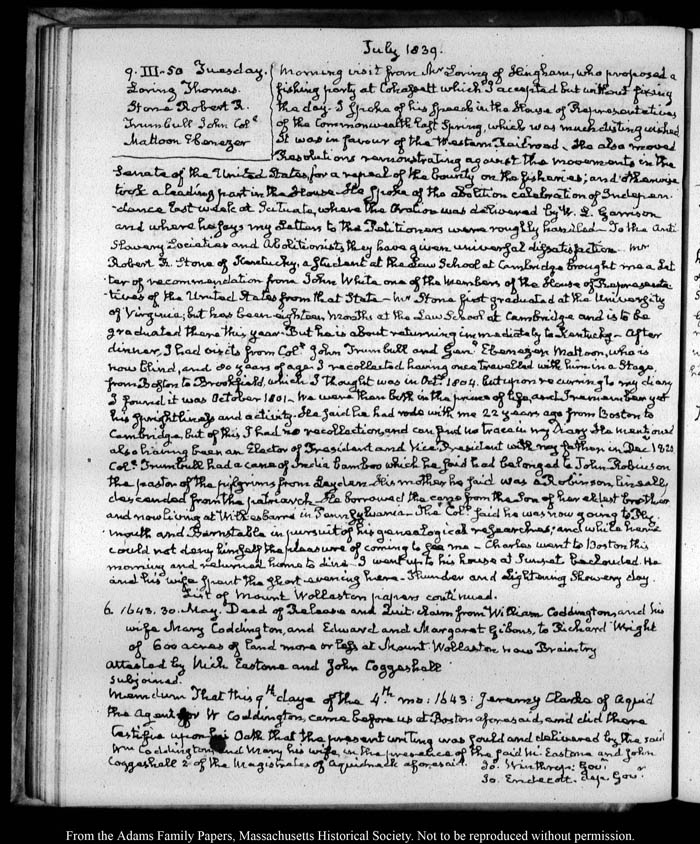 July 1839.
9. III-50 Tuesday.
Loring Thomas.
Stone Robert R.
Trumbull John Colˡ
Mattoon Ebenezer
Morning visit from Mr Loring of Hingham, who proposed a
fishing party at Cohassett which I accepted but without fixing
the day. I spoke of his speech in the House of Representatives
of the Commonwealth last Spring, which was much distinguished
It was in favour of the Western Railroad. He also moved
Resolutions remonstrating against the movements in the
Senate of the United States, for a repeal of the bounty on the fisheries; and otherwise
took a leading part in the House. He spoke of the abolition celebration of Indepen-
-dance last week at Scituate, where the Oration was delivered by W. L. Garrison
and where he says my Letters to the Petitioners were roughly handled. To the Anti
Slavery Societies and Abolitionists they have given universal dissatisfaction. Mr
Robert R. Stone of Kentucky, a Student at the Law School at Cambridge brought me a Let-
ter of recommendation from John White one of the members of the House of Representa-
tives of the United States from that State - Mr Stone first graduated at the University
of Virginia, but has been eighteen months at the Law School at Cambridge and is to be
graduated there this year. But he is about returning immediately to Kentucky. After
dinner, I had visits from Colˡ John Trumbull and Genˡ Ebenezer Mattoon, who is
now blind, and 80 years of age. I recollected having once travelled with him in a Stage,
from Boston to Brookfield, which I thought was in Octʳ 1804. but upon recurring to my diary
I found it was October 1801 - We were then both in the prime of life, and I remember yet
his sprightliness and activity. He said he had rode with me 22 years ago from Boston to
Cambridge, but of this I had no recollection, and can find no trace in my Diary. He mentioned
also having been an Elector of President and Vice President with my father in Decʳ 1820.
Colˡ Trumbull had a cane of India bamboo which he said had belonged to John Robinson
the pastor of the pilgrims from Leyden. His mother he said was a Robinson lineally
descended from the patriarch. He borrowed the cane from the Son of her eldest brother
and now living at Wilkesbarre in Pennsylvania - The Colˡ said he was now going to Ply-
mouth and Barnstable in pursuit of his genealogical researches; and while here
could not deny himself the pleasure of coming to see me - Charles went to Boston this
morning and returned home to dine. I went up to his house at Sunset beclouded. He
and his wife spent the short evening here. Thunder and Lightening Showery day.
List of Mount Wollaston papers continued.
6. 1643. 30. May. Deed of Release and Quit claim from William Coddington, and his
wife Mary Coddington, and Edward and Margaret Gibons, to Richard Wright
of 600 acres of land more or less at Mount Wollaston now Braintry
attested by Nich Eastone and John Coggeshall
subjoined.
Memdum That this 9ᵗʰ daye of the 4.ᵗʰ mo: 1643: Jeremy Clarke of Aquid
the Agent for W Coddington, came before us at Boston aforesaid, and did there
testifie upon his Oath that the present writing was sould and delivered by the said
Wm Coddington, and Mary his wife, in the presence of the said N: Eastone and John
Coggeshall 2 of the Magistrates of Aquidnack aforesaid. Jo. Winthrop: Govʳ
Jo. Endecott. dep Govʳ
From the Adams Family Papers, Massachusetts Historical Society. Not to be reproduced without permission.